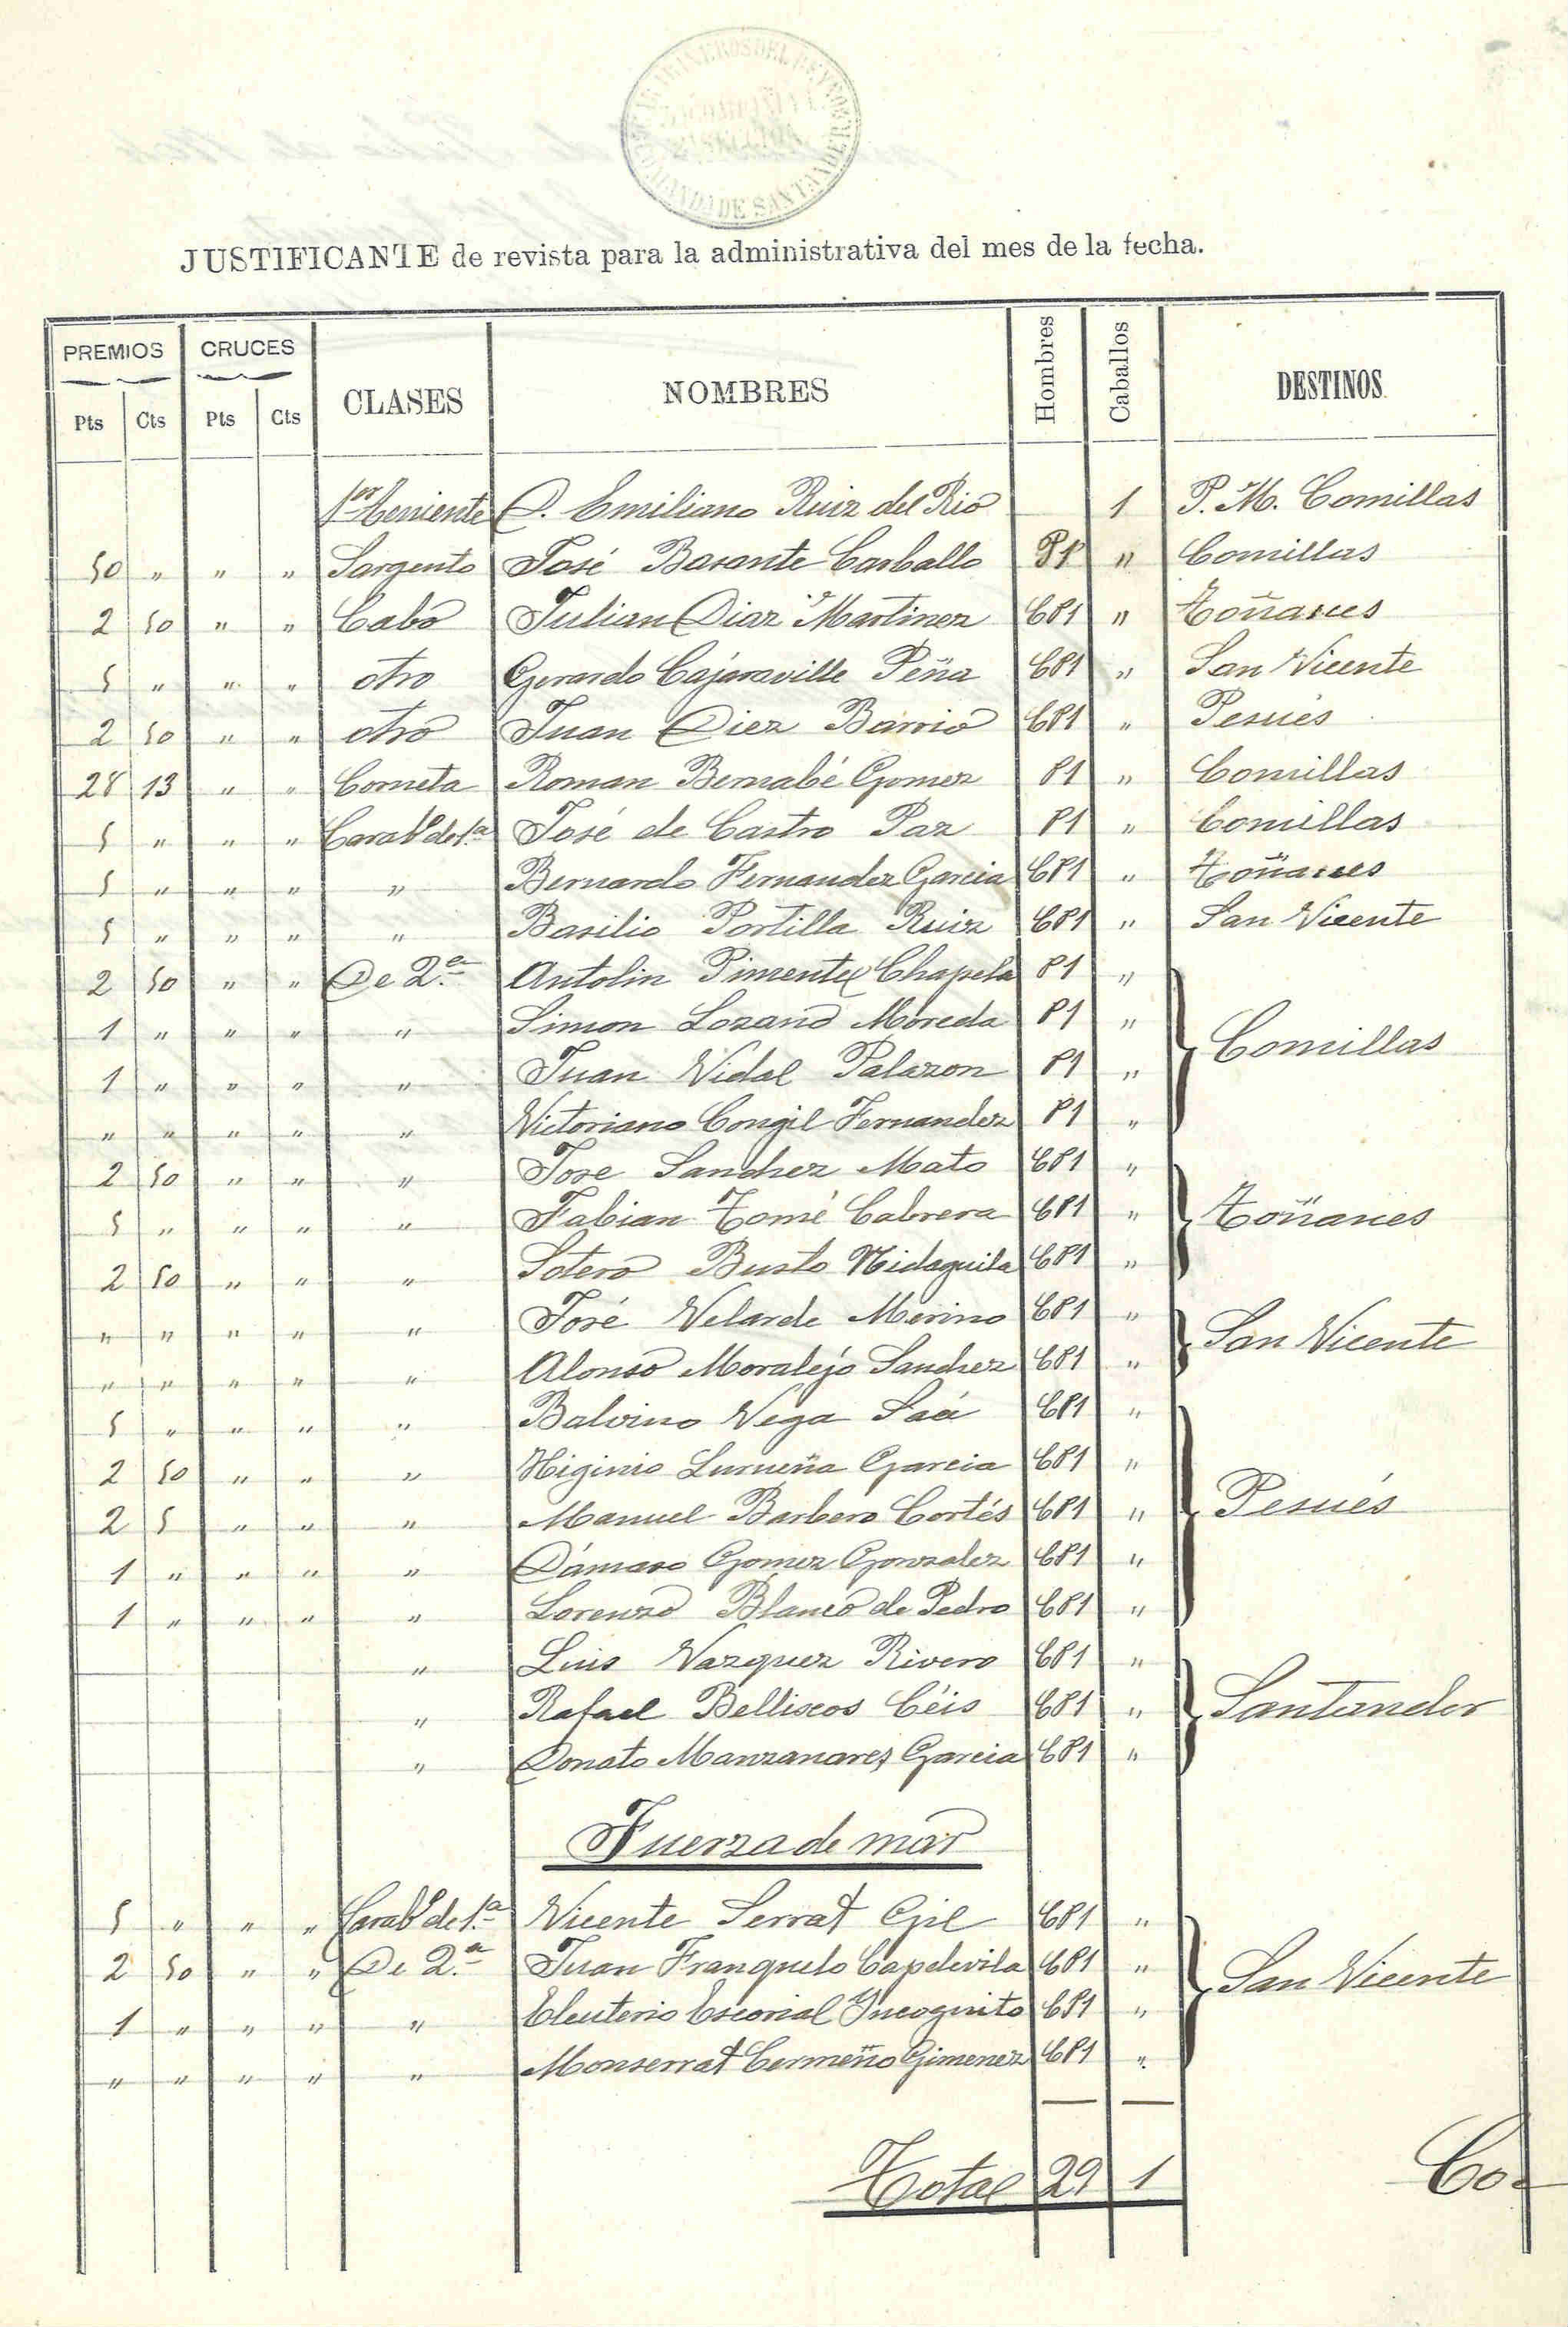 COMANDA DE SANTANDER
JUSTIFICANTE de revista para la administrativa del mes de la fecha.
PREMIOS CRUCES CLASES NOMBRES Hombres Caballos DESTINOS
Pts Cts Pts Cts
1er Teniente D. Emiliano Ruiz del Rio 1 P. M. Comillas
50 " " " Sargento José Basante Carballo P1 " Comillas
2 50 " " Cabo Julian Diaz Martinez CP1 " Toñanes
5 " " " otro Gerardo Cajaraville Peña CP1 " San Vicente
2 50 " " otro Juan Diez Barrio CP1 " Pesués
28 13 " " Corneta Roman Bernabé Gomez P1 " Comillas
5 " " " Carabo de 1.a José de Castro Paz P1 " Comillas
5 " " " " Bernardo Fernandez Garcia CP1 " Toñanes
5 " " " " Basilio Portilla Ruiz CP1 " San Vicente
2 50 " " De 2.a Antolin Pimentel Chapela P1 "
1 " " " " Simon Lozano Moreda P1 " Comillas
1 " " " " Juan Vidal Palazon P1 "
" " " " " Victoriano Congil Fernandez P1 "
2 50 " " " Jose Sanchez Mato CP1 "
5 " " " " Fabian Tomé Cabrera CP1 " Toñanes
2 50 " " " Sotero Busto Hidaguila CP1 "
" " " " " José Velarde Merino CP1 " San Vicente
" " " " " Alonso Moralejo Sanchez CP1 "
5 " " " " Balvino Vega Saá CP1 "
2 50 " " " Higinio Lurueña Garcia CP1 "
2 5 " " " Manuel Barbero Cortés CP1 " Pesués
1 " " " " Dámaso Gomez Gonzalez CP1 "
1 " " " " Lorenzo Blanco de Pedro CP1 "
" Luis Vazquez Rivero CP1 "
" Rafael Belliscos Céis CP1 " Santander
" Donato Manzanares Garcia CP1 "
Fuerza de mar
5 " " " Carabo de 1.a Vicente Serrat Gil CP1 "
2 50 " " De 2.a Juan Franquelo Capdevila CP1 " San Vicente
1 " " " " Eleuterio Escorial Yncognito CP1 "
" " " " " Monserrat Cermeño Gimenez CP1 "
Total 29 1 Co-